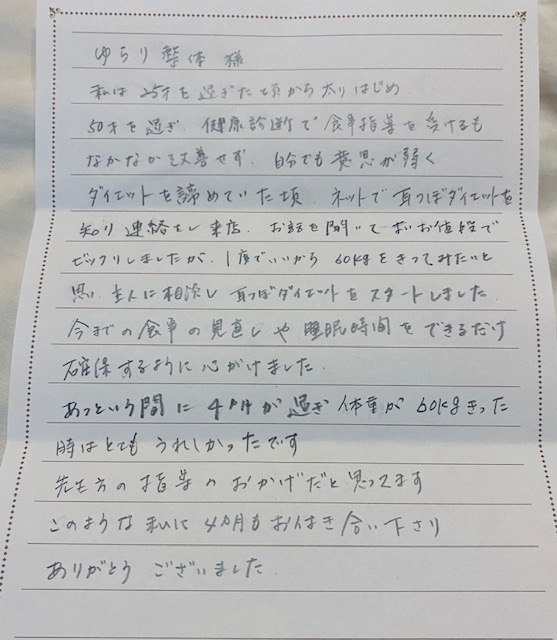 ゆらり整体 様
私は25才を過ぎた頃から太りはじめ
50才を過ぎ、健康診断で食事指導を受けるも
なかなか改善せず、自分でも意思が弱く
ダイエットを諦めていた頃、ネットで耳つぼダイエットを
知り連絡をし来店、お話を聞いて高いお値段で
ビックリしましたが、1度でいいから60kgをきってみたいと
思い、主人に相談し耳つぼダイエットをスタートしました。
今までの食事の見直しや睡眠時間をできるだけ
確保するように心がけました。
あっという間に4ヶ月が過ぎ体重が60kgきった
時はとてもうれしかったです
先生方の指導のおかげだと思ってます
このような私に4ヵ月もお付き合い下さり
ありがとうございました。